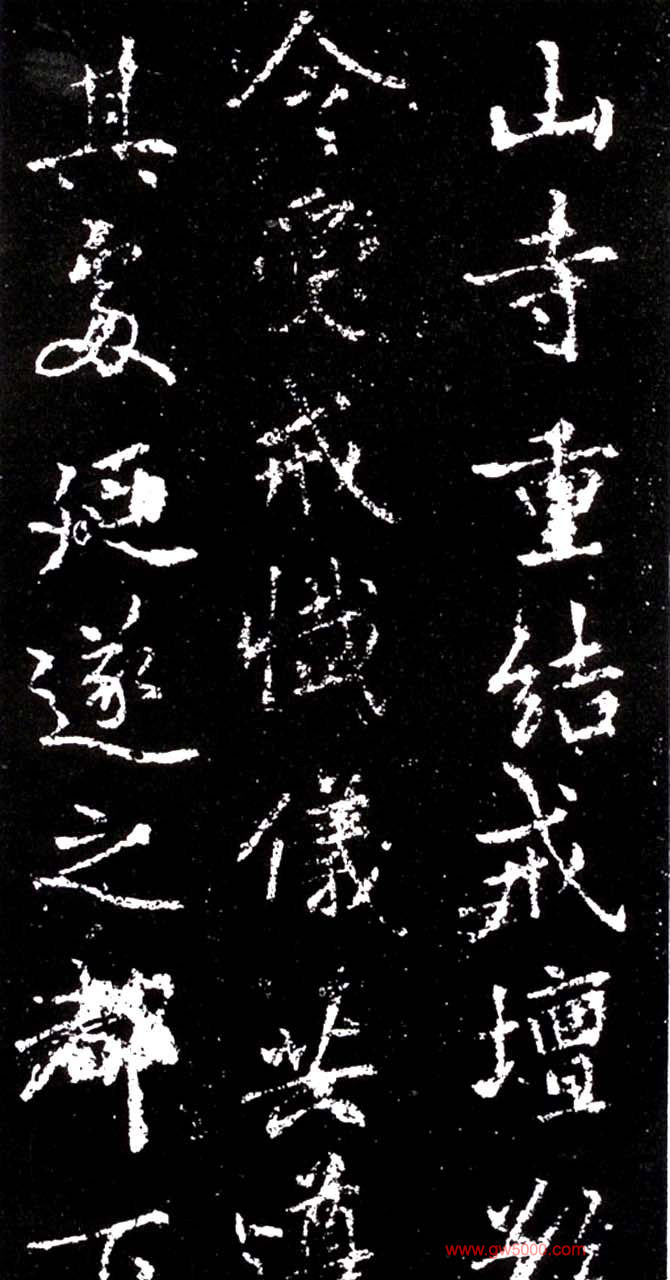 山寺重結戒壇
令受戒懺儀共
其處便遂之都下
www.gw5000.com